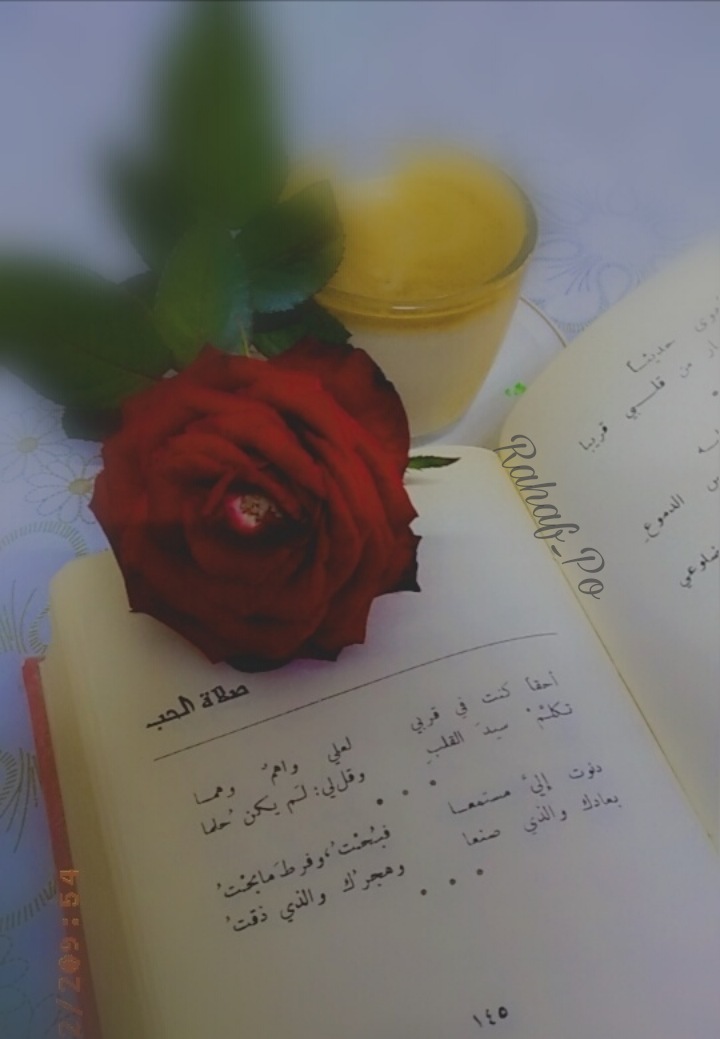 صلاة الحب
أحقا كنت في قربي لعلي واهمٌ وهما
تكلمْ سيدَ القلبِ وقل لي: لم يكن حُلما
* * *
دنوت إليَّ مستمعا فبُحْتُ، وفرطَ ما بحْتُ
بعادك والذي صنعا وهجرُك والذي ذقتُ
* * *
١٤٥
حديثا
من قلبي قريبا
الدموعِ
ضلوعي
Rahaf_Po
2/209:54